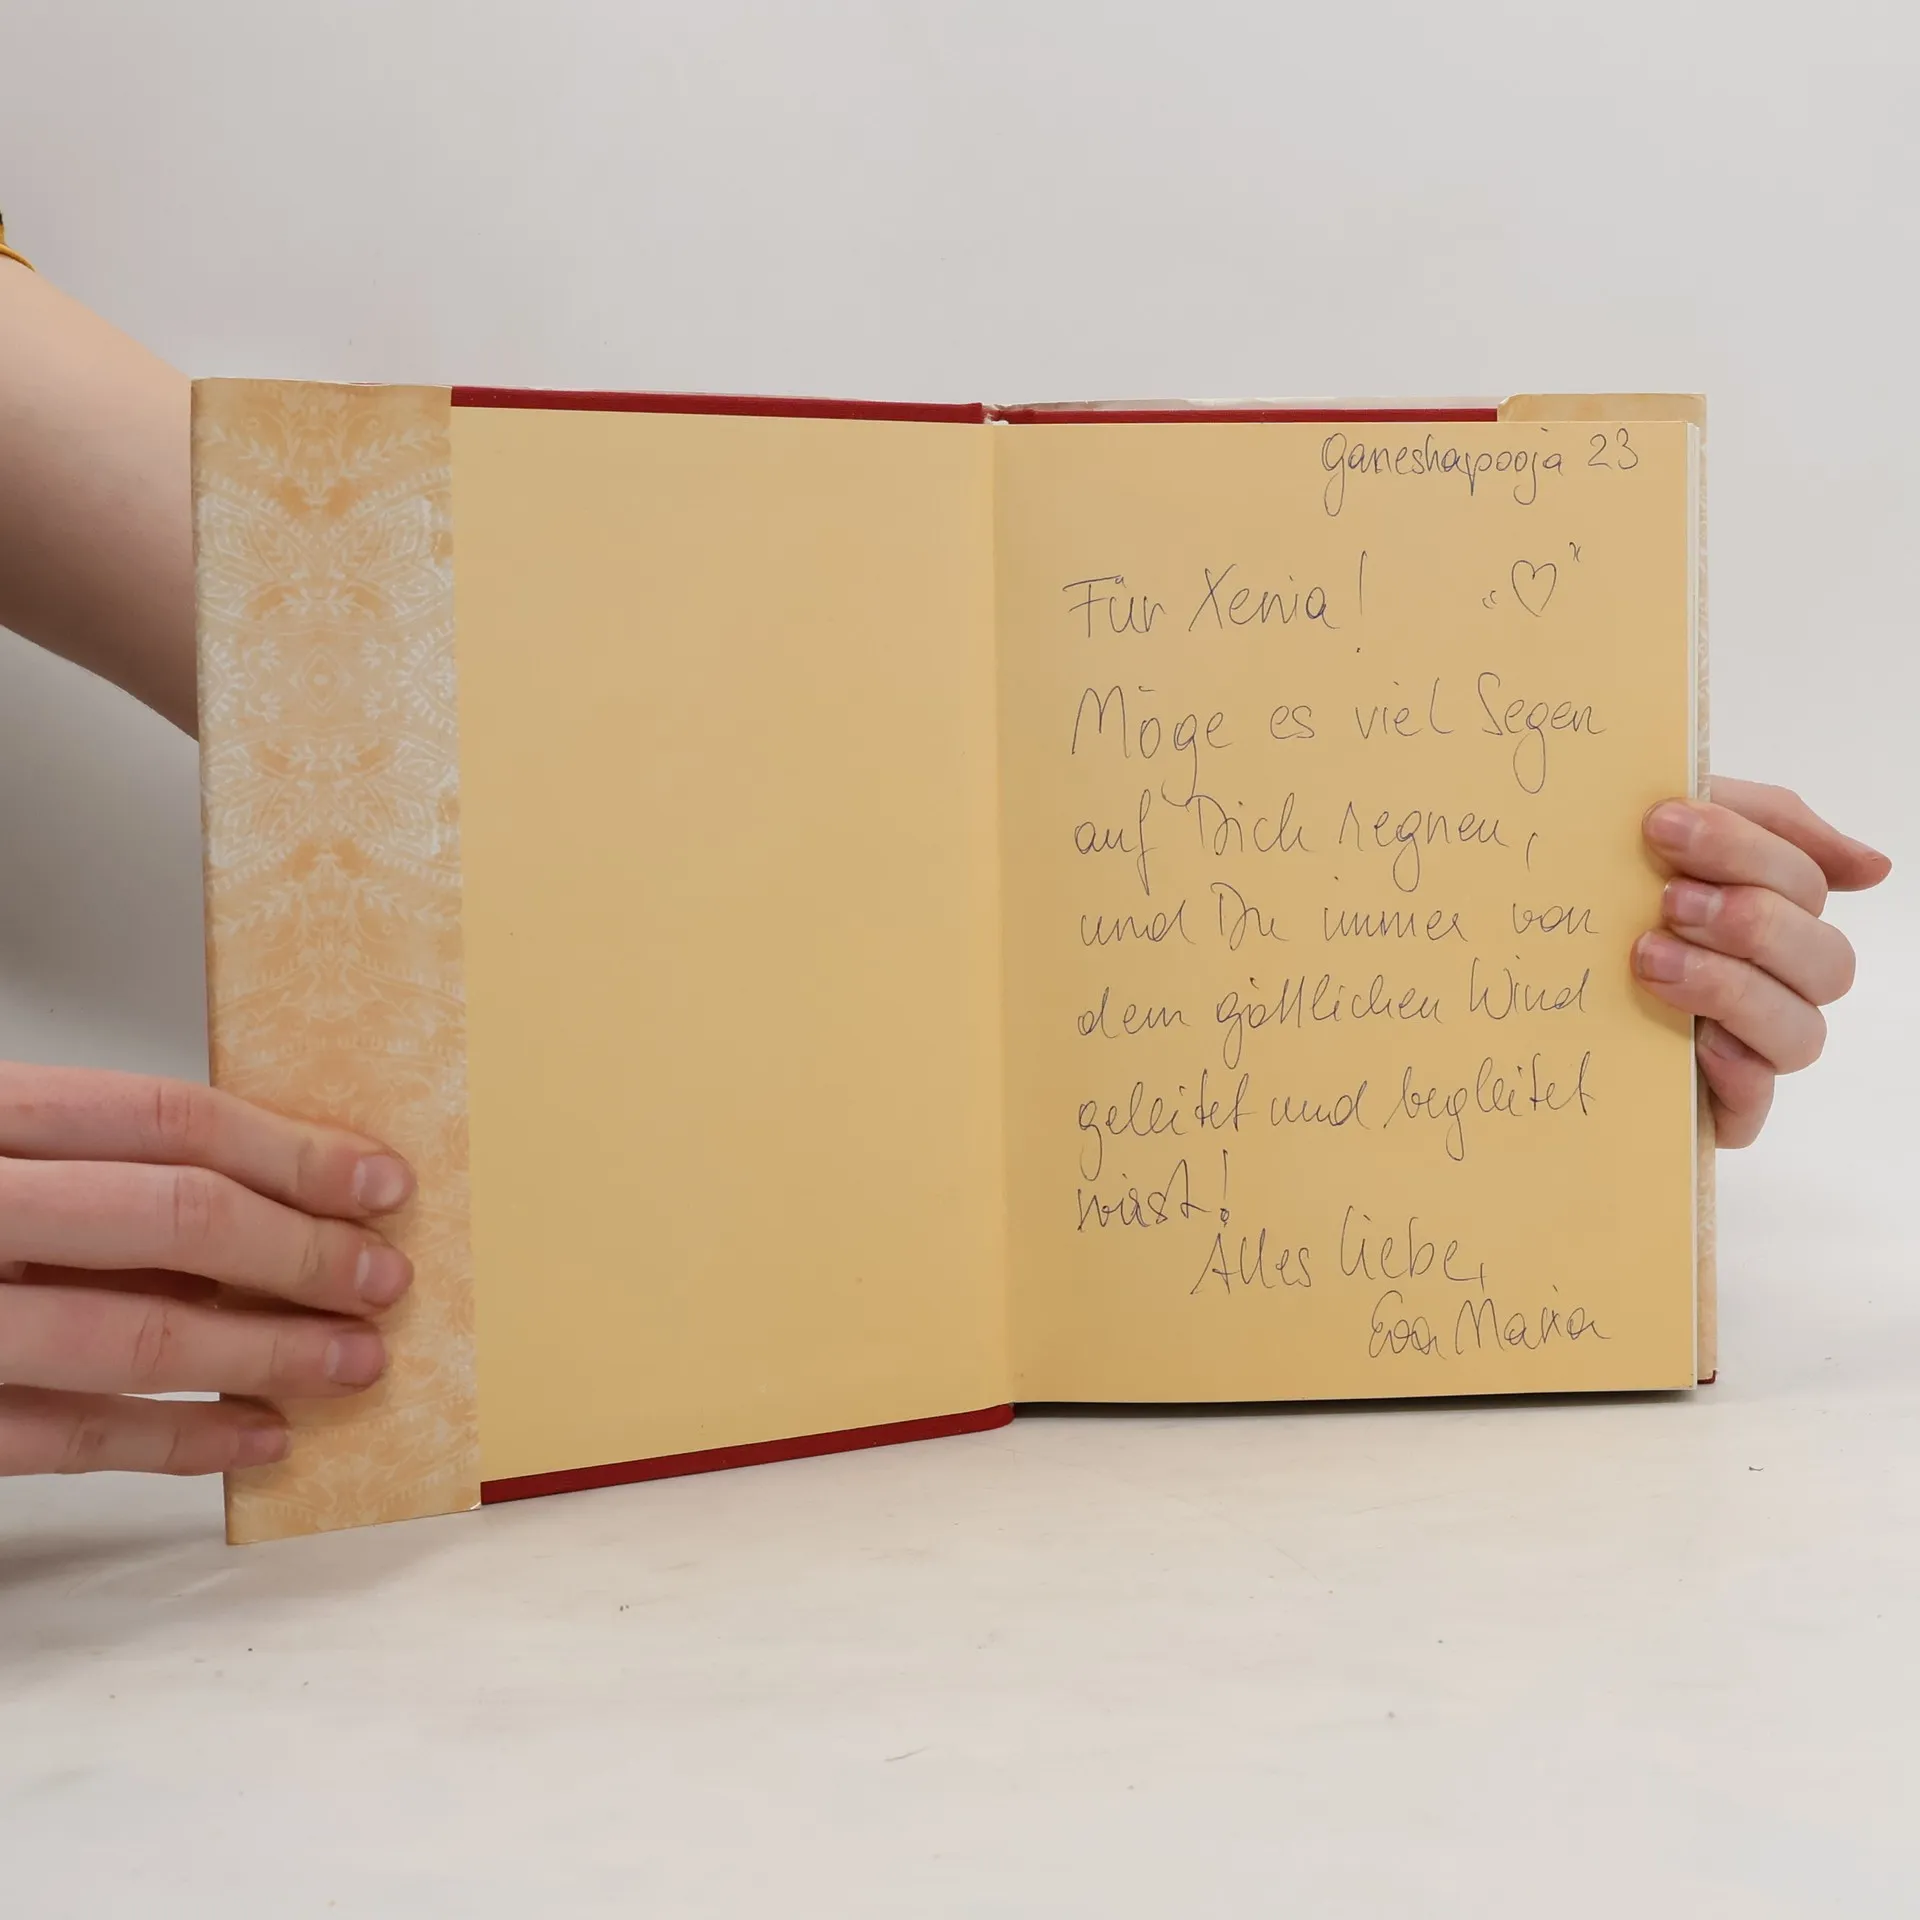 Ganeshapooja 23
Für Xenia!
Möge es viel Segen
auf Dich regnen,
und Du immer von
dem göttlichen Wind
geleitet und begleitet
wirst!
Alles Liebe,
Eva Maria